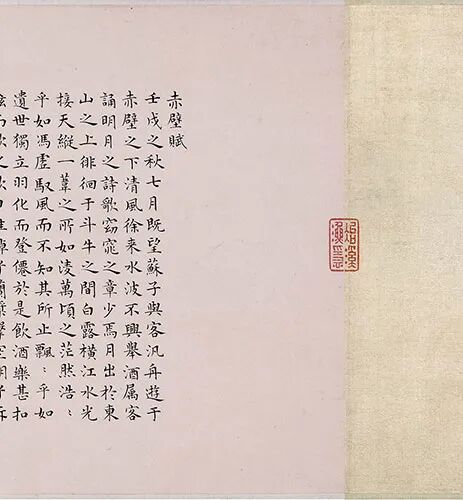 赤壁賦
壬戌之秋七月既望蘇子與客汎舟遊于
赤壁之下清風徐来水波不興舉酒属客
誦明月之詩歌窈窕之章少焉月出於東
山之上徘徊于斗牛之間白露橫江水光
接天縱一葦之所如淩萬頃之茫然浩:
乎如馮虛馭風而不知其所止飄:乎如
遺世獨立羽化而登僊於是飲酒樂甚扣